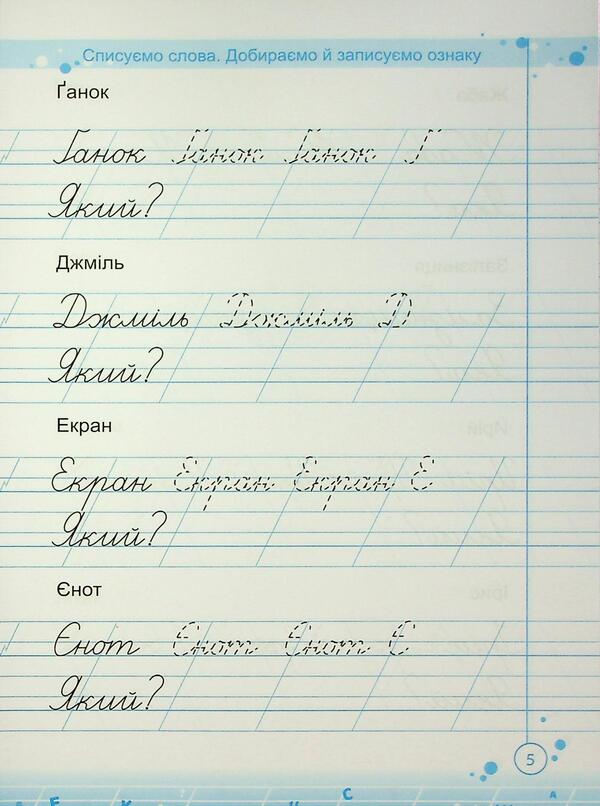 Списуємо слова. Добираємо й записуємо ознаку
Ґанок
Ґанок Ґанок Ґанок Ґ
Який?
Джміль
Джміль Джміль Д
Який?
Екран
Екран Екран Екран Е
Який?
Єнот
Єнот Єнот Єнот Є
Який?
5